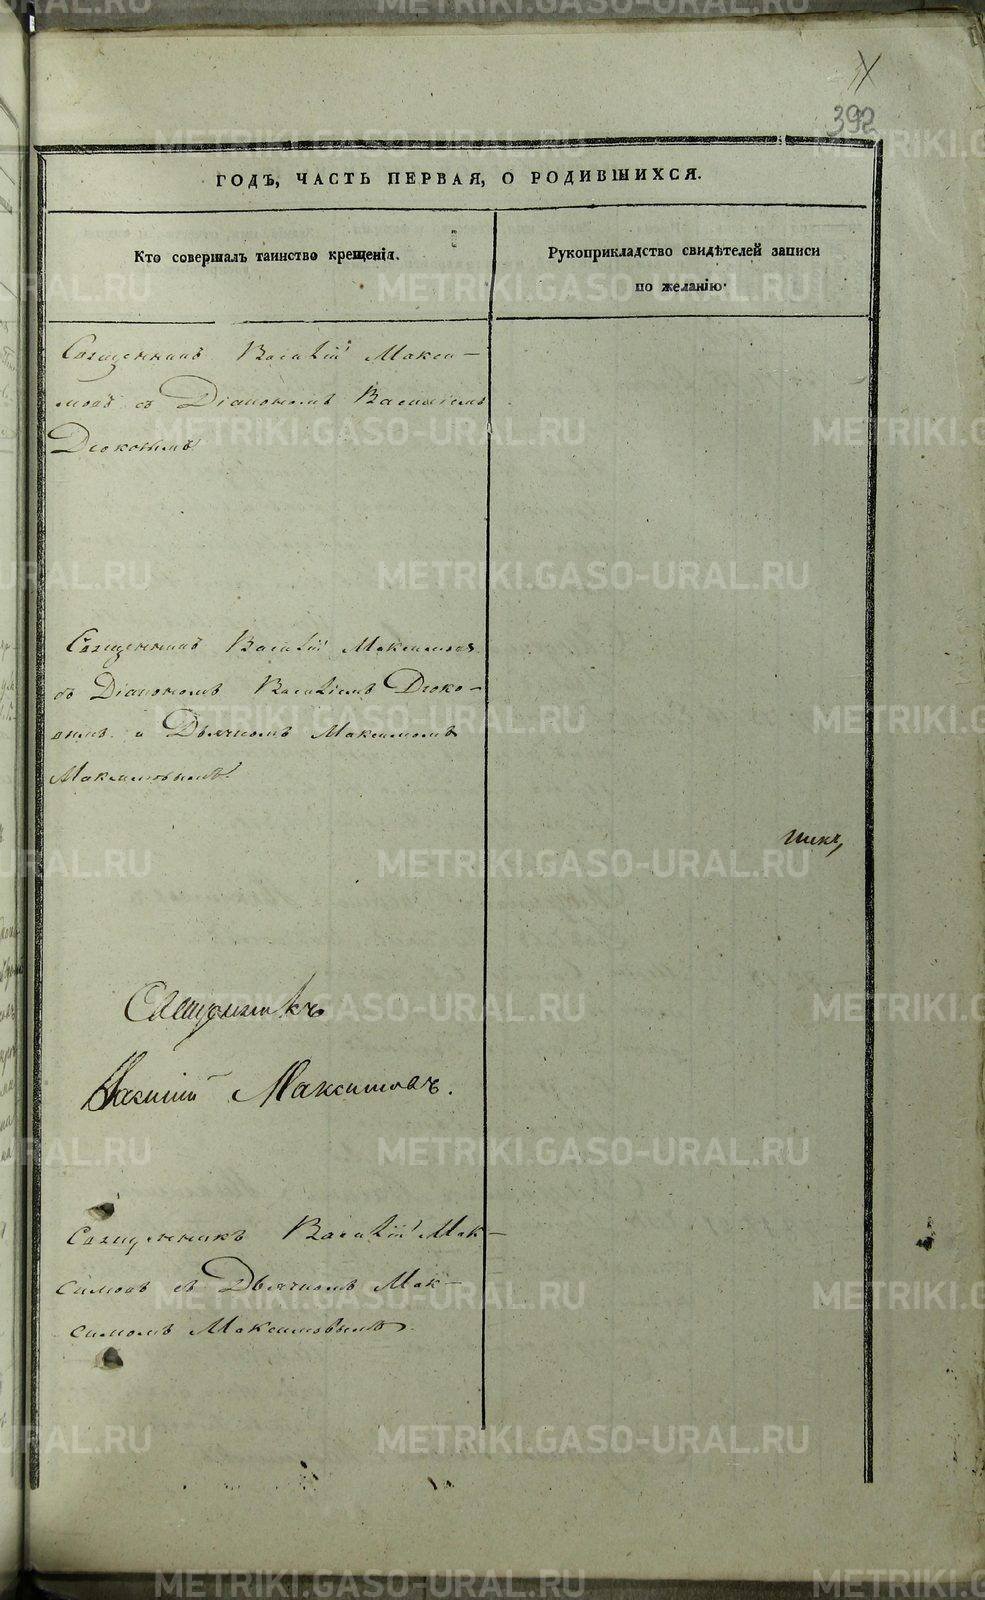 392
ГОДЪ, ЧАСТЬ ПЕРВАЯ, О РОДИВШИХСЯ.
Кто совершалъ таинство крещенія.
Рукоприкладство свидѣтелей записи
по желанію.
Священникъ Василій Макси-
мовъ съ Діакономъ Василіемъ
Священникъ Василій Максимовъ
съ Діакономъ Василіемъ
и Дьячкомъ Максимомъ
Максимовымъ
Священникъ
Василій Максимовъ.
Священникъ Василій Мак-
симовъ съ Дьячкомъ Мак-
симомъ Максимовымъ.
METRIKI.GASO-URAL.RU